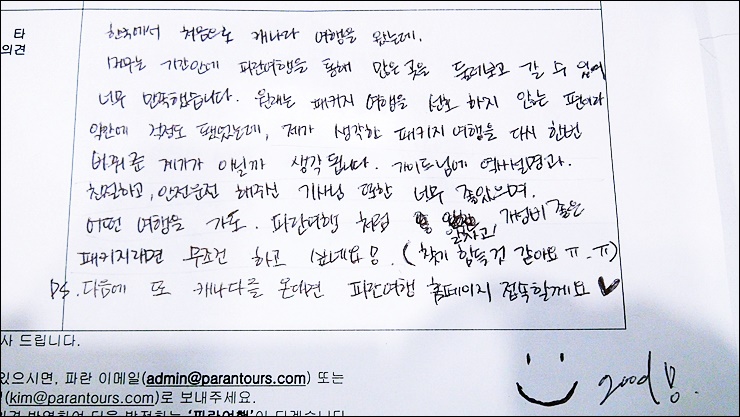 타
의견
한국에서 처음으로 캐나다 여행을 왔는데.
머무는 기간안에 파란여행을 통해 많은 곳을 둘러보고 갈 수 있어
너무 만족했습니다. 원래는 패키지 여행을 선호 하지 않는 편이라
약간에 걱정도 했었는데, 제가 생각한 패키지 여행을 다시 한번
바꿔준 계기가 아닐까 생각 됩니다. 가이드님에 역사설명과.
친절하고, 안전운전 해주신 기사님 또한 너무 좋았으며.
어떤 여행을 가도. 파란여행 처럼 알차고! 가성비 좋은
패키지라면 무조건 하고 싶네요! (찾기 힘들것 같아요 ㅠ_ㅠ)
P.S. 다음에 또 캐나다를 온다면 파란여행 홈페이지 접속할께요 ♥
good!
사 드립니다.
있으시면, 파란 이메일(admin@parantours.com) 또는
(kim@parantours.com)로 보내주세요.
반영하여 더욱 발전하는 '파란여행'이 되겠습니다